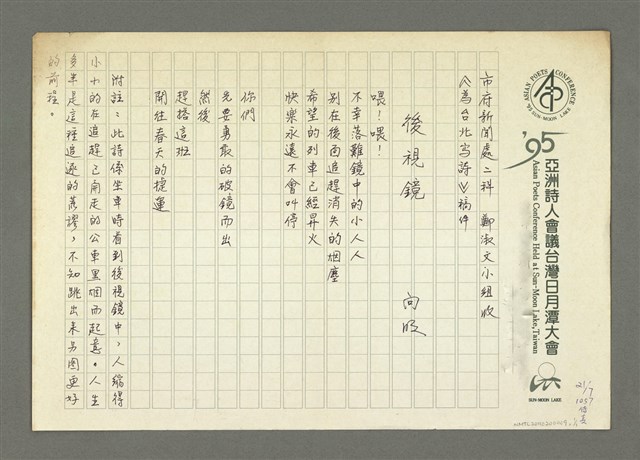 ASIAN POETS CONFERENCE
'95 SUN-MOON LAKE
'95
亞洲詩人會議台灣日月潭大會
Asian Poets Conference Held at Sun-Moon Lake, Taiwan
SUN-MOON LAKE
市府新聞處二科 鄭淑文小姐收
《為台北寫詩》稿件
後視鏡
向明
喂!喂!
不幸落難鏡中的小人人
別在後面追趕消失的烟塵
希望的列車已經昇火
快樂永遠不會叫停
你們
先要勇敢的破鏡而出
然後
趕搭這班
開往春天的捷運
附註:此詩係坐車時看到後視鏡中,人縮得
小小的在追趕已開走的公車黑烟而起意。人生
多半是這種追逐的荒謬,不知跳出來另圖更好
的前程。
21/7
1057